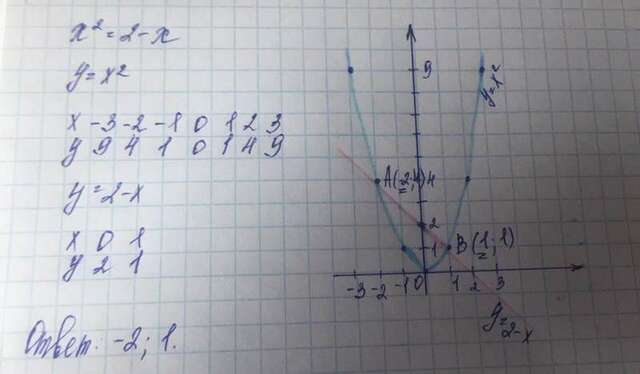 x² = 2 - x
y = x²
x -3 -2 -1 0 1 2 3
y 9 4 1 0 1 4 9
y = 2 - x
x 0 1
y 2 1
Ответ: -2; 1.
9
y = x²
A(-2; 4) 4
2
1 B(1; 1)
-3 -2 -1 0 1 2 3
y = 2 - x